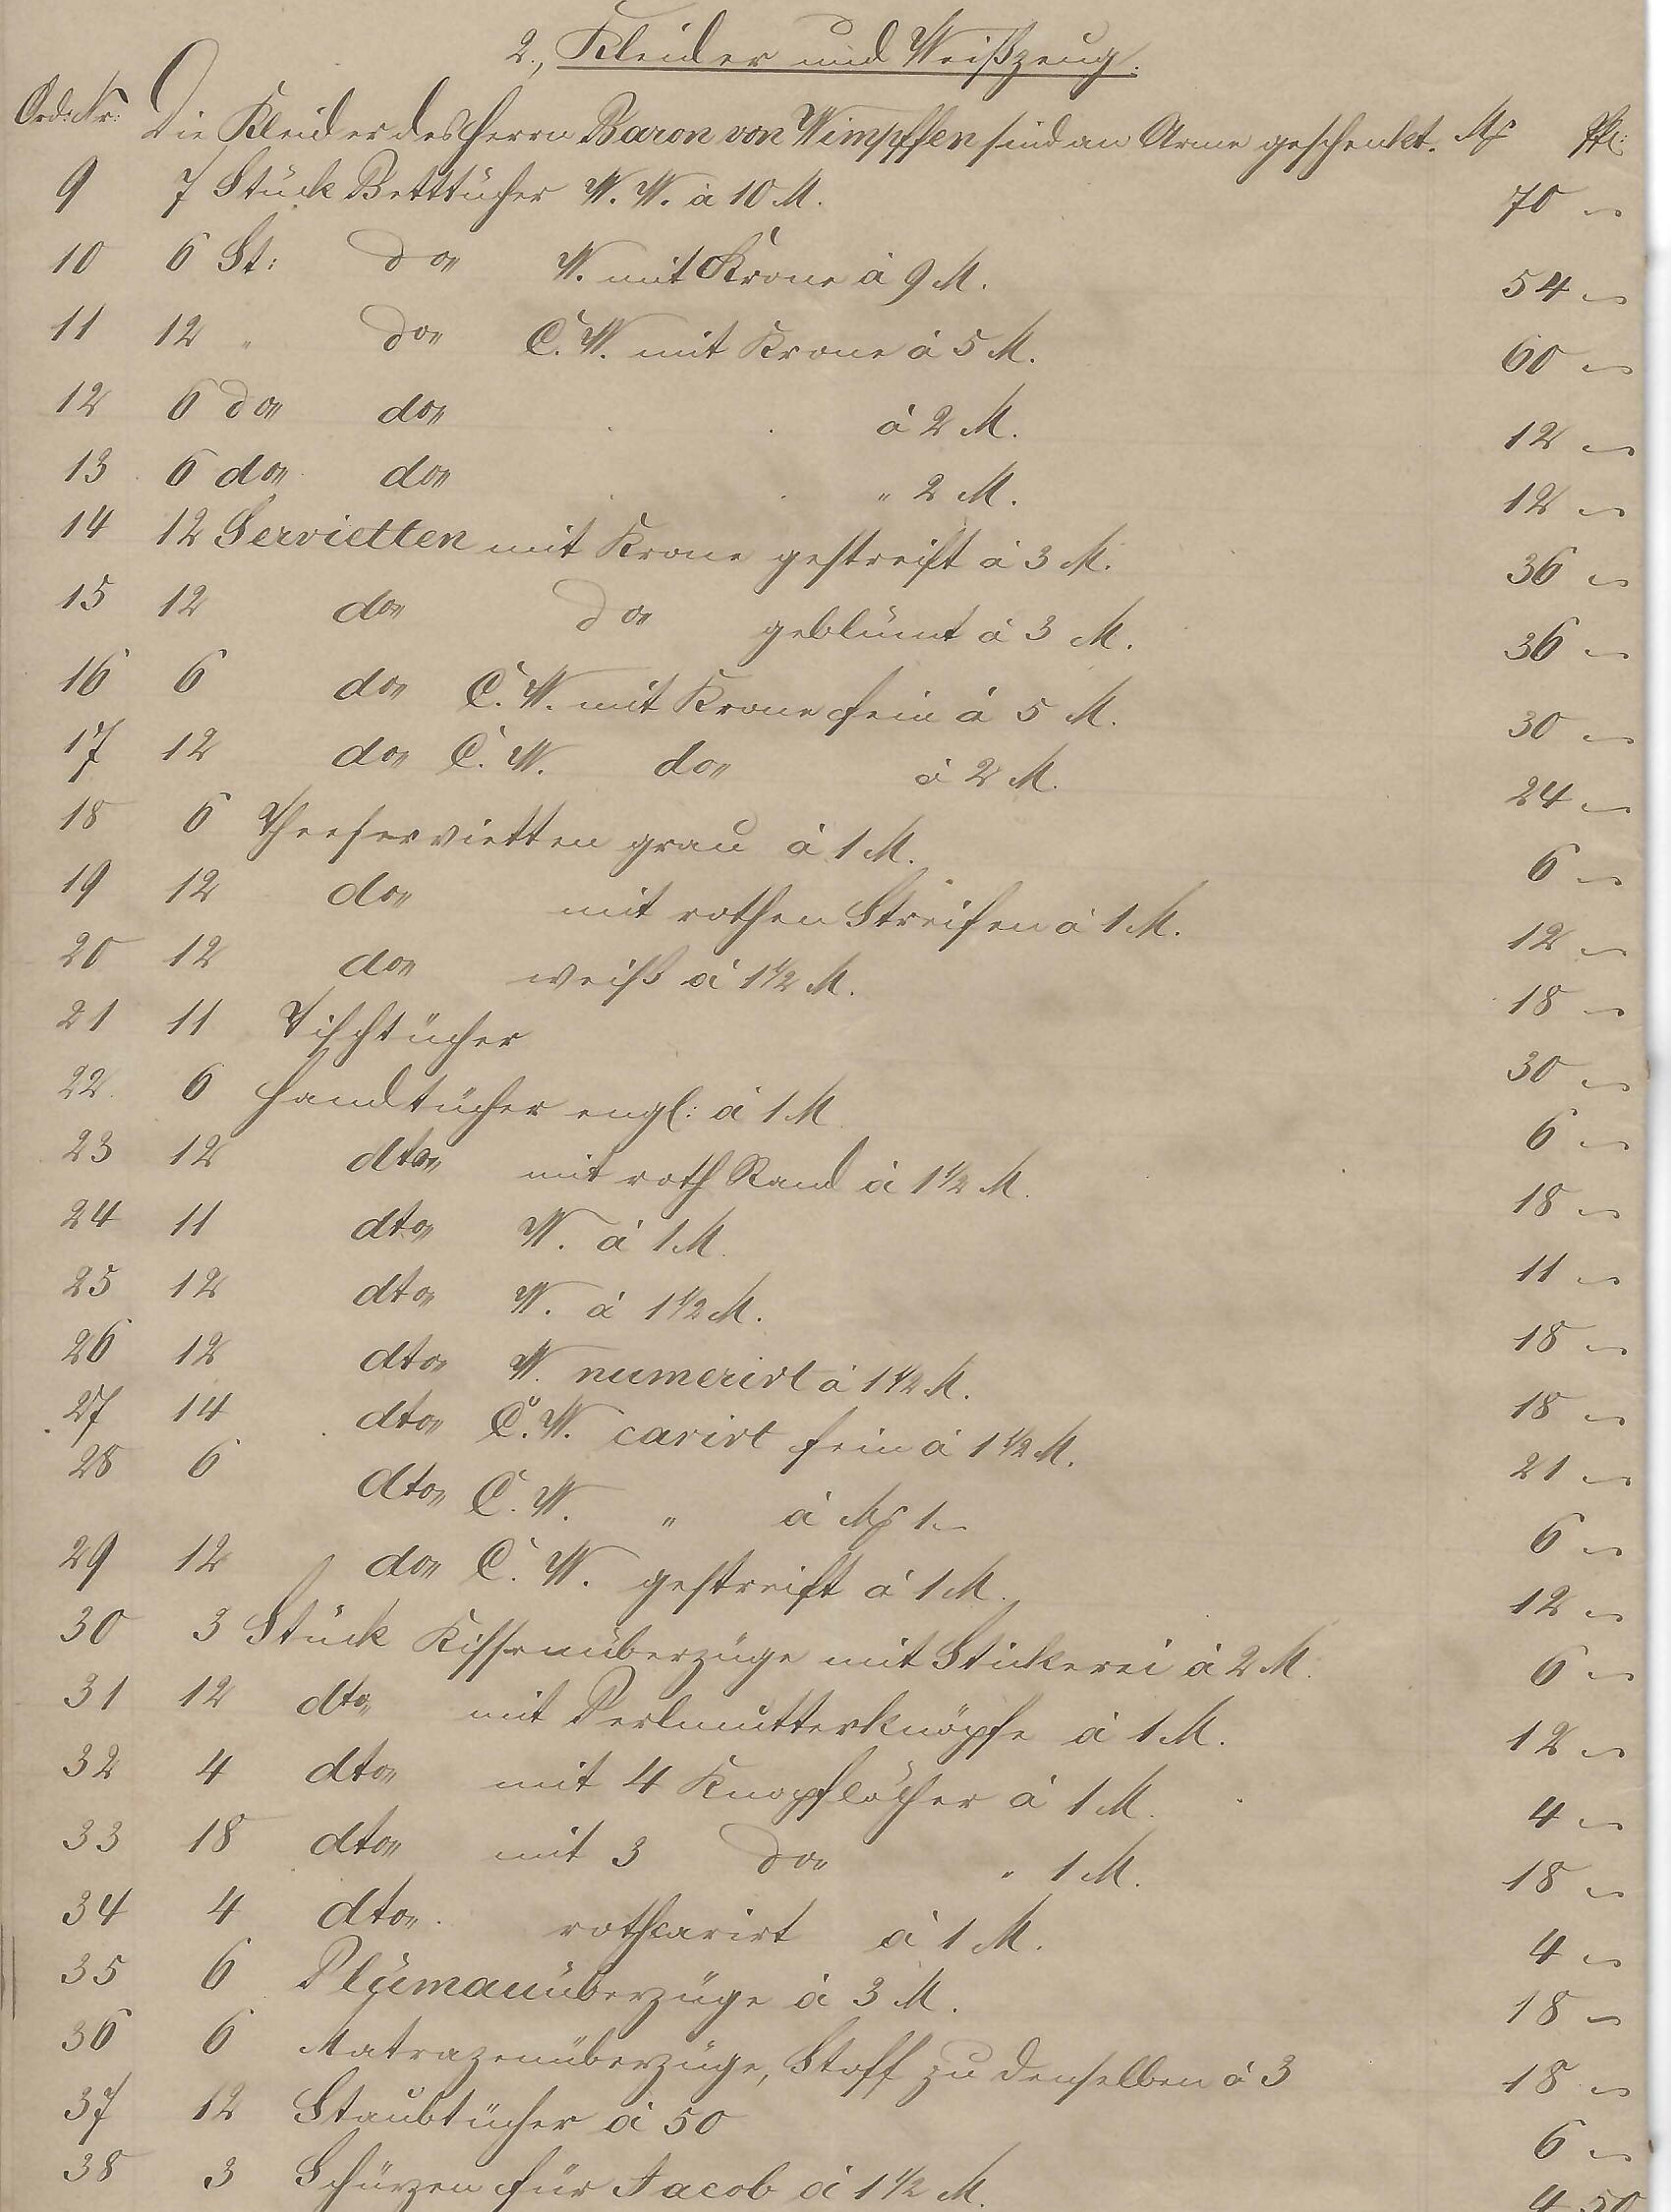 2., Kleider und Weißzeug.
Ord: Nr: Die Kleider des Herrn Baron von Wimpffen sind an Arme geschenkt. M Pf:
9 7 Stück Betttücher W. W. à 10 M. 70 —
10 6 St: do W. mit Krone à 9 M. 54 —
11 12 " do C. W. mit Krone à 5 M. 60 —
12 6 do do à 2 M. 12 —
13 6 do do " 2 M. 12 —
14 12 Servietten mit Krone gestreift à 3 M. 36 —
15 12 do do geblümt à 3 M. 36 —
16 6 do C. W. mit Krone fein à 5 M. 30 —
17 12 do C. W. do à 2 M. 24 —
18 6 Theeservietten grau à 1 M. 6 —
19 12 do mit rothen Streifen à 1 M. 12 —
20 12 do weiß à 1 1/2 M. 18 —
21 11 Tischtücher 30 —
22 6 Handtücher engl: à 1 M 6 —
23 12 dto mit roth Rand à 1 1/2 M. 18 —
24 11 dto W. à 1 M. 11 —
25 12 dto W. à 1 1/2 M. 18 —
26 12 dto W. numerirt à 1 1/2 M. 18 —
27 14 dto C. W. carirt fein à 1 1/2 M. 21 —
28 6 dto C. W. " à M 1 — 6 —
29 12 do C. W. gestreift à 1 M. 12 —
30 3 Stück Kissenüberzüge mit Stickerei à 2 M. 6 —
31 12 dto mit Perlmutterknöpfe à 1 M. 12 —
32 4 dto mit 4 Knopflöcher à 1 M. 4 —
33 18 dto mit 3 do " 1 M. 18 —
34 4 dto rothcarirt à 1 M. 4 —
35 6 Plümauüberzüge à 3 M. 18 —
36 6 Matrazenüberzüge, Stoff zu denselben à 3 18 —
37 12 Staubtücher à 50 6 —
38 3 Schürzen für Jacob à 1 1/2 M. 4 50